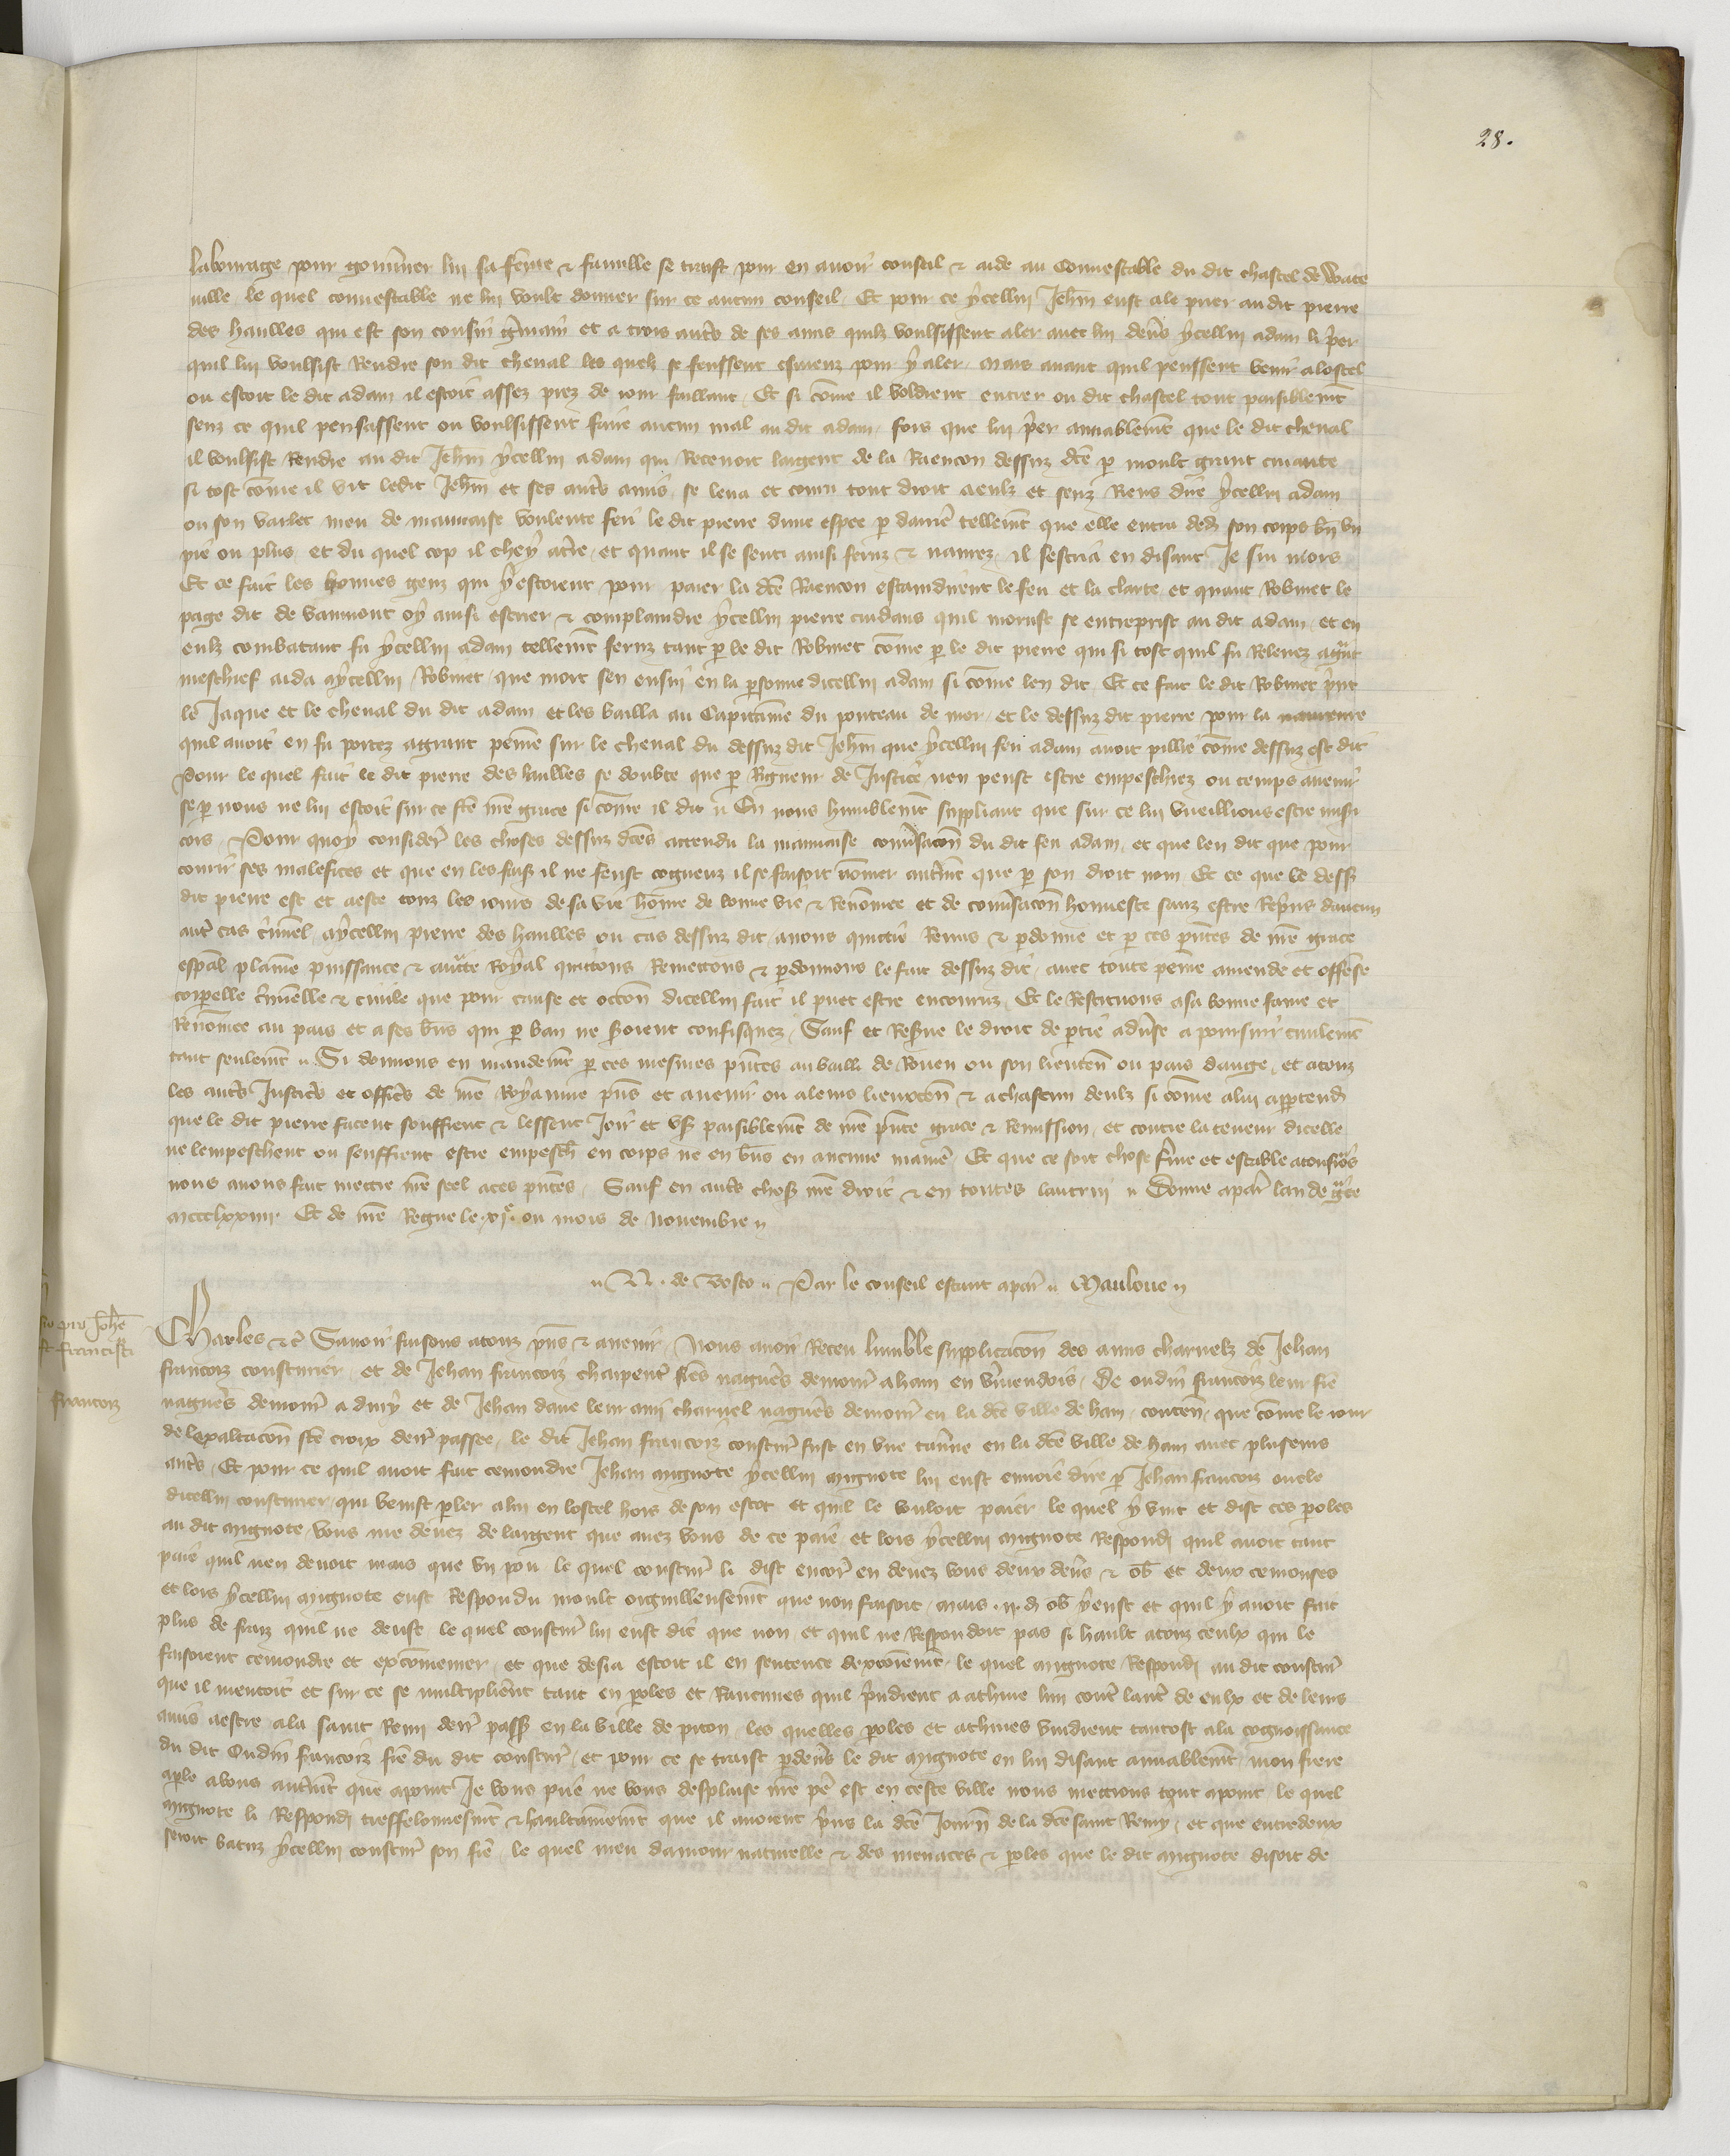 28.
labourage pour gouv̄ner lui sa fēme & famille se traist pour en avoir conseil & aide au Connestable du dit chastel de Wate
ville le quel connestable ne lui voult donner sur ce aucun conseil Et pour ce ycellui Jeh̄n eust ale prier au dit pierre
des haulles qui est son cousin ḡmain et a trois autr̄s de ses amis quilz voulsissent aler avec lui dev̄s ycellui adam li p̄er
quil lui voulsist Rendre son dit cheval les quelz se feussent esmeuz pour y aler mais avant quil peussent venir a lostel
ou estoit le dit adam il estoit assez prez de jour faillant Et si cōme il voldrent entrer ou dit chastel tout paisiblem̄t
senz ce quil pensassent ou voulsissent faire aucun mal au dit adam fors que lui p̄er amiablem̄t que le dit cheval
il voulsist Rendre au dit Jeh̄n ycellui adam qui Recevoit largent de la Raencon dessuz dc̄e p moult grant
si tost cōme il vit ledit Jeh̄n et ses autr̄s amis se leva et couru tout droit a eulz et senz Riens dire ycellui adam
ou son varlet meu de mauvaise voulente feri le dit pierre dune espee p darrier̄ tellem̄t que elle entra dedz son corps bn̄ un
pie ou plus et du quel cop il chey a tr̄e et quant il se senti ainsi feruz & navrez il sescria en disant Je sui mors
Et ce fait les bonnes genz qui y estoient pour paier la dc̄e Raencon estaindirent le feu et la clarte et quant Robinet le
page dit de vaumont oy ainsi escrier & complaindre ycellui pierre cuidans quil morust se entreprist au dit adam et en
eulz combatant fu ycellui adam tellem̄t feruz tant p le dit Robinet cōme p le dit pierre qui si tost quil fu Relevez a gr̄nt
meschief aida a ycellui Robinet que mort sen ensui en la p̄sonne dicellui adam si cōme len dit Et ce fait le dit Robinet p̄nt
le Jaque et le cheval du dit adam et les bailla au Capitaine du ponteau de mer et le dessuz dit pierre pour la navreure
quil avoit en fu portez a grant peine sur le cheval du dessuz dit Jeh̄n que ycellui feu adam avoit pillie cōme dessuz est dit
Pour le quel fait le dit pierre des haulles se doubte que p Rigueur de Justice nen peust estre empeschiez ou temps avenir
se p nous ne lui estoit sur ce fc̄e nr̄e grace si cōme il dit En nous humblem̄t suppliant que sur ce lui vueillions estre mis̄i
cors Pour quoy consider̄ les choses dessuz dc̄es attendu la mauvaise conv̄sacōn du dit feu adam et que len dit que pour
couvrir ses malefices et que en les fais̄ il ne feust cogneuz il se faisoit nōmer autrem̄t que p son droit nom Et ce que le dess̄
dit pierre est et a este touz les jours de sa vie hōme de bonne vie & Renōmee et de conv̄sacōn honneste sanz estre Repr̄s daucun
autr̄ cas crim̄el a ycellui pierre des haulles ou cas dessuz dit avons quictie Remis & p̄donne et p ces p̄ntes de nr̄e grace
esp̄al plaine puissance & aucte Royal quictons Remettons & p̄donnons le fait dessuz dit avec toute peine amende et offense
corporelle crim̄elle & civile que pour cause et occōn dicellui fait il puet estre encouruz Et le Restituons a sa bonne fame et
Renōmee au pais et a ses bn̄s qui p ban ne s̄oient confisquez Sauf et Res̄ve le droit de p̄tie adv̄se a poursuir civilem̄t
tant seulem̄t Si donnons en mandem̄t p ces mesmes p̄ntes au bailli de Rouen ou son lieuten̄ ou pais dauge et a touz
les autr̄s Justic̄rs et offic̄rs de nr̄e Royaume p̄ns et avenir ou a leurs lieuxten̄ & a chascun deulz si cōme a lui app̄tendra
que le dit pierre facent souffrent & lessent Joir et us̄ paisiblem̄t de nr̄e p̄nte grace & Remission et contre la teneur dicelle
ne lempeschent ou seuffrent estre empesch̄ en corps ne en bn̄s en aucune manie Et que ce soit chose f̄me et estable a tousjo̅rs
nous avons fait mettre nr̄e seel a ces p̄ntes Sauf en autr̄s choses nr̄e droit & en toutes lautrui Donne a par̄ lan de gr̄ce
mccclxxiiii Et de nr̄e Regne le xje ou mois de Novembre
N. de Vesco Par le conseil estant a par̄ Mauloue
Charles &c̄ Savoir faisons a touz p̄ns & avenir Nous avoir Receu lumble supplicacōn des amis charnelz de Jehan
francoiz cousturier et de Jehan francoiz charpent̄ fr̄es nagueres demour̄ a ham en v̄mendois De oudin francoiz leur fr̄e
nagueres demour̄ a dury et de Jehan dave leur ami charnel nagueres demour̄ en la dc̄e ville de ham conten̄ que cōme le jour
de lexaltacōn ste croix derr̄ passee le dit Jehan francoiz coustur̄ fust en une tav̄ne en la dc̄e ville de ham avec pluseurs
autr̄s Et pour ce quil avoit fait cemondre Jehan mignote ycellui mignote lui eust envoie dire p Jehan francoiz oncle
dicellui cousturier qui venist p̄ler a lui en lostel hors de son escot et quil le vouloit paier le quel y vint et dist ces p̄oles
au dit mignote vous me devez de largent que avez vous de ce paie et lors ycellui mignote Respondi quil avoit tant
paie quil nen devoit mais que un pou le quel coustur̄ li dist encor̄ en devez vous deux den̄s & ob̄ et deux cemonses
et lors ycellui mignote eust Respondu moult orguilleusem̄t que non faisoit mais .ii. d ob̄ y eust et quil y avoit fait
plus de fraiz quil ne deust le quel coustur̄ lui eust dit que non et quil ne Respondoit pas si hault a touz ceulx qui le
faisoient cemondre et excōmenier et que desia estoit il en sentence dexcōiem̄t le quel mignote Respondi au dit coustur̄
que il mentoit et sur ce se multiplier̄nt tant en p̄oles et Rancunes quil p̄ndrent a athine lun contr̄ lautr̄ de eulx et de leurs
amis a estre a la saint Remi derr̄ pass̄ en la ville de piton les quelles p̄oles et athines vindrent tantost a la cognoissance
du dit Oudin francoiz fr̄e du dit coustur̄ et pour ce se traist p̄ dev̄s le dit mignote en lui disant amiablem̄t mon frere
a p̄le a vous autrem̄t que a point Je vous prie ne vous desplaise nr̄e pe est en ceste ville nous mettrons tout a point le quel
mignote li Respondi tresfelonnesm̄t & haultainem̄t que il avoient p̄ns la dc̄e Journ̄ de la dc̄e saint Remy et que entredeux
seroit batuz ycellui coustur̄ son fr̄e le quel meu damour naturelle & des menaces & p̄oles que le dit mignote disoit de
pro Joh̄e
francisci
francoiz